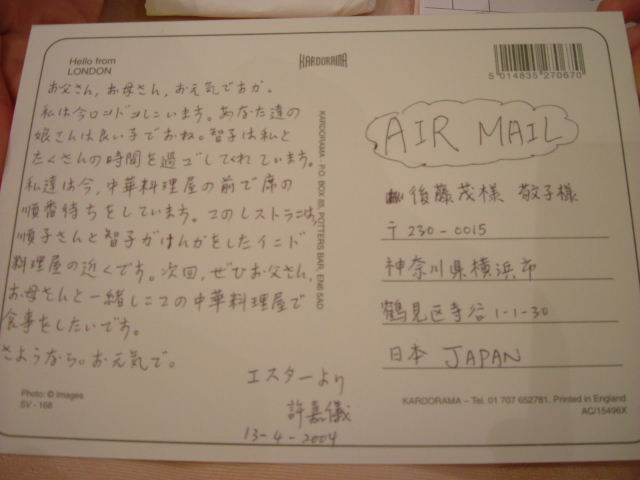 Hello from
LONDON
KARDORAMA
5 014835 270670
お父さん,お母さん,お元気ですか。
私は今ロンドンにいます。あなた達の
娘さんは良い子ですね。智子は私と
たくさんの時間を過ごしてくれています。
私達は今,中華料理屋の前で席の
順番待ちをしています。このレストランは,
順子さんと智子がけんかをしたインド
料理屋の近くです。次回,ぜひお父さん,
お母さんと一緒にこの中華料理屋で
食事をしたいです。
さようなら。お元気で。
エスターより
許嘉儀
13-4-2004
KARDORAMA PO. BOX 85, POTTERS BAR, EN6 5AD
AIR MAIL
後藤茂様 敬子様
〒230-0015
神奈川県横浜市
鶴見区寺谷1-1-30
日本 JAPAN
Photo: © Images
SV - 168
KARDORAMA – Tel. 01 707 652781. Printed in England
AC/15496X